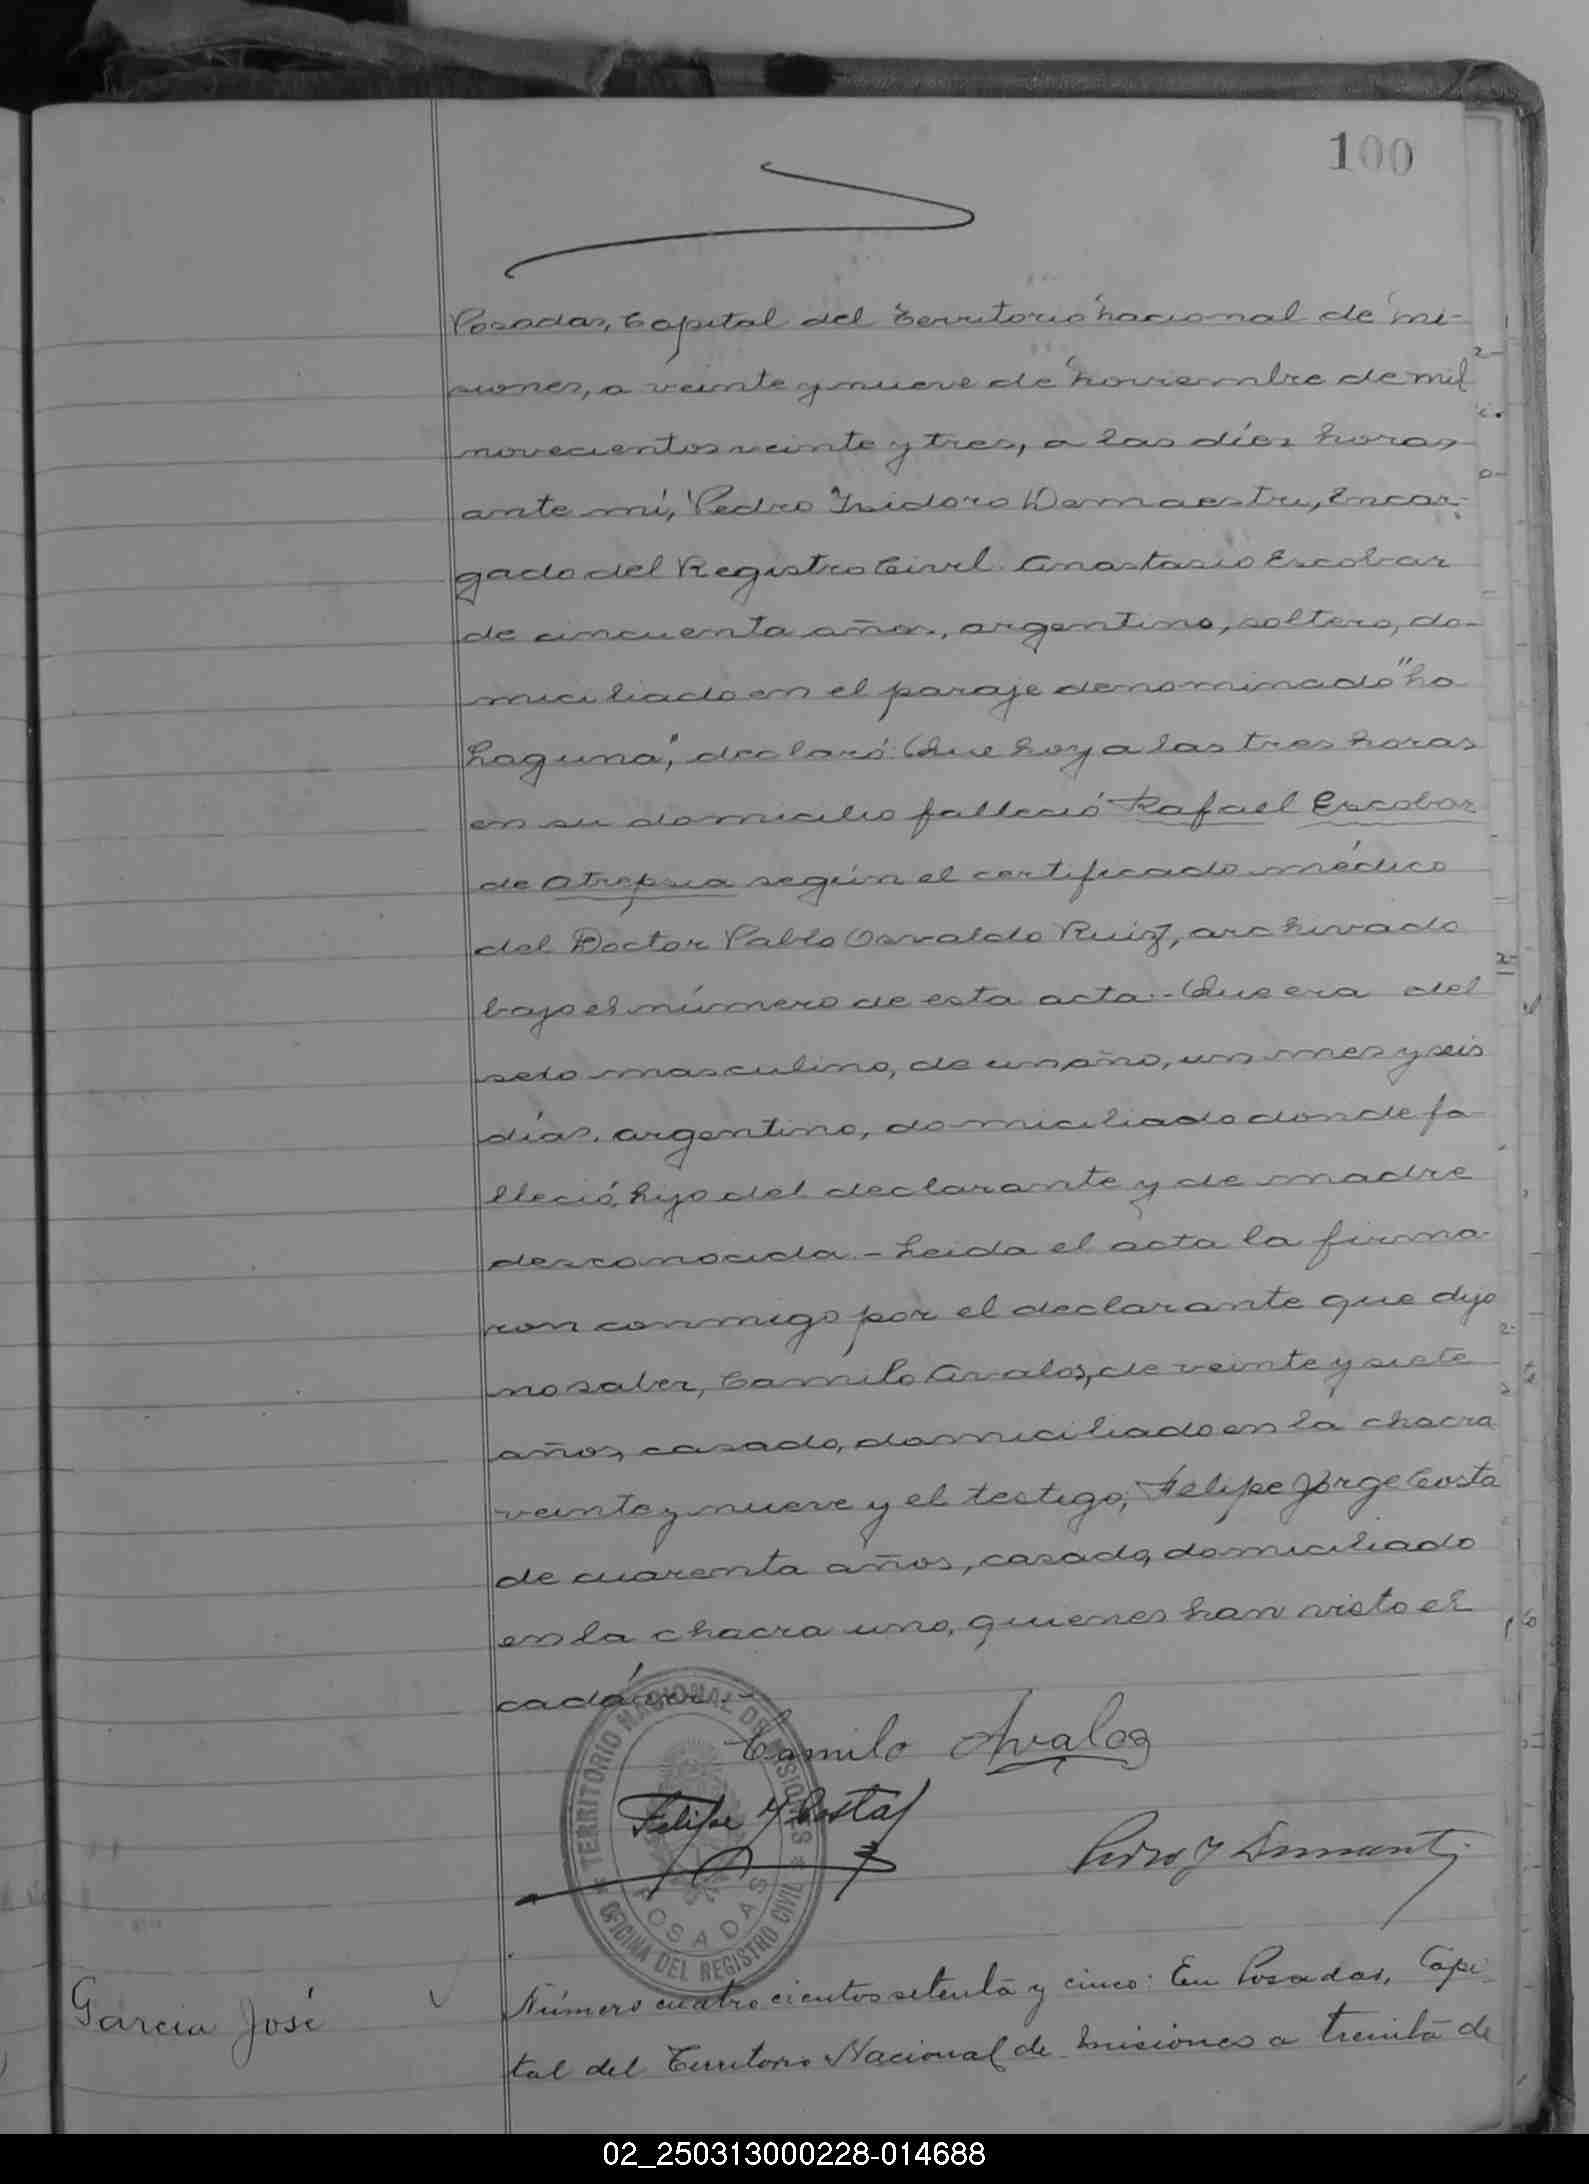 100
Posadas, Capital del Territorio Nacional de Mi-
siones, a veinte y nueve de Noviembre de mil
novecientos veinte y tres, a las diez horas,
ante mí, Pedro Isidoro Demaestri, Encar-
gado del Registro Civil. Anastasio Escobar
de cincuenta años, argentino, soltero, do-
miciliado en el paraje denominado "La
Laguna", declaró: Que hoy a las tres horas
en su domicilio falleció Rafael Escobar
de Atrepsia según el certificado médico
del Doctor Pablo Osvaldo Ruiz, archivado
bajo el número de esta acta.- Que era del
sexo masculino, de un año, un mes y seis
días, argentino, domiciliado donde fa-
lleció, hijo del declarante y de madre
desconocida.- Leida el acta la firma-
ron conmigo por el declarante que dijo
no saber, Camilo Avalos, de veinte y siete
años, casado, domiciliado en la chacra
veinte y nueve y el testigo, Felipe Jorge Costa
de cuarenta años, casado, domiciliado
en la chacra uno, quienes han visto el
cadáver.-
Camilo Avalos
Felipe J Costa
Pedro I Demaestri
TERRITORIO NACIONAL DE MISIONES
OFICINA DEL REGISTRO CIVIL
POSADAS
Garcia José
Número cuatrocientos setenta y cinco: En Posadas, Capi-
tal del Territorio Nacional de Misiones a treinta de
02_250313000228-014688